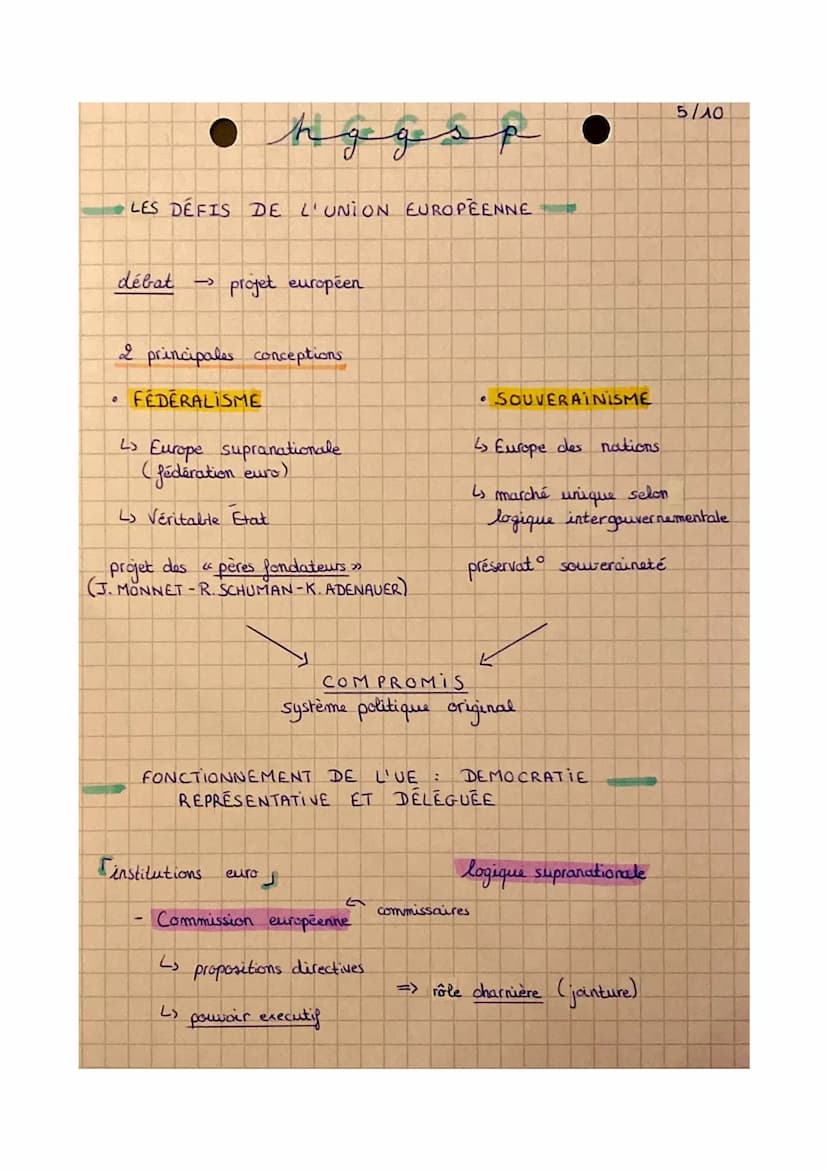 5/10
hggsp
HGGSP
LES DÉFIS DE L'UNION EUROPÉENNE
débat → projet européen
2 principales conceptions
• FÉDÉRALISME
↳ Europe supranationale
(fédération euro)
↳ Véritable État
projet des « pères fondateurs »
(J. MONNET - R. SCHUMAN - K. ADENAUER)
• SOUVERAINISME
↳ Europe des nations
↳ marché unique selon
logique intergouvernementale
préservat° souveraineté
COMPROMIS
système politique original
FONCTIONNEMENT DE L'UE : DEMOCRATIE
REPRÉSENTATIVE ET DÉLÉGUÉE
「institutions euro」
logique supranationale
- Commission européenne ← commissaires
↳ propositions directives
↳ pouvoir executif
⇒ rôle charnière (jointure)